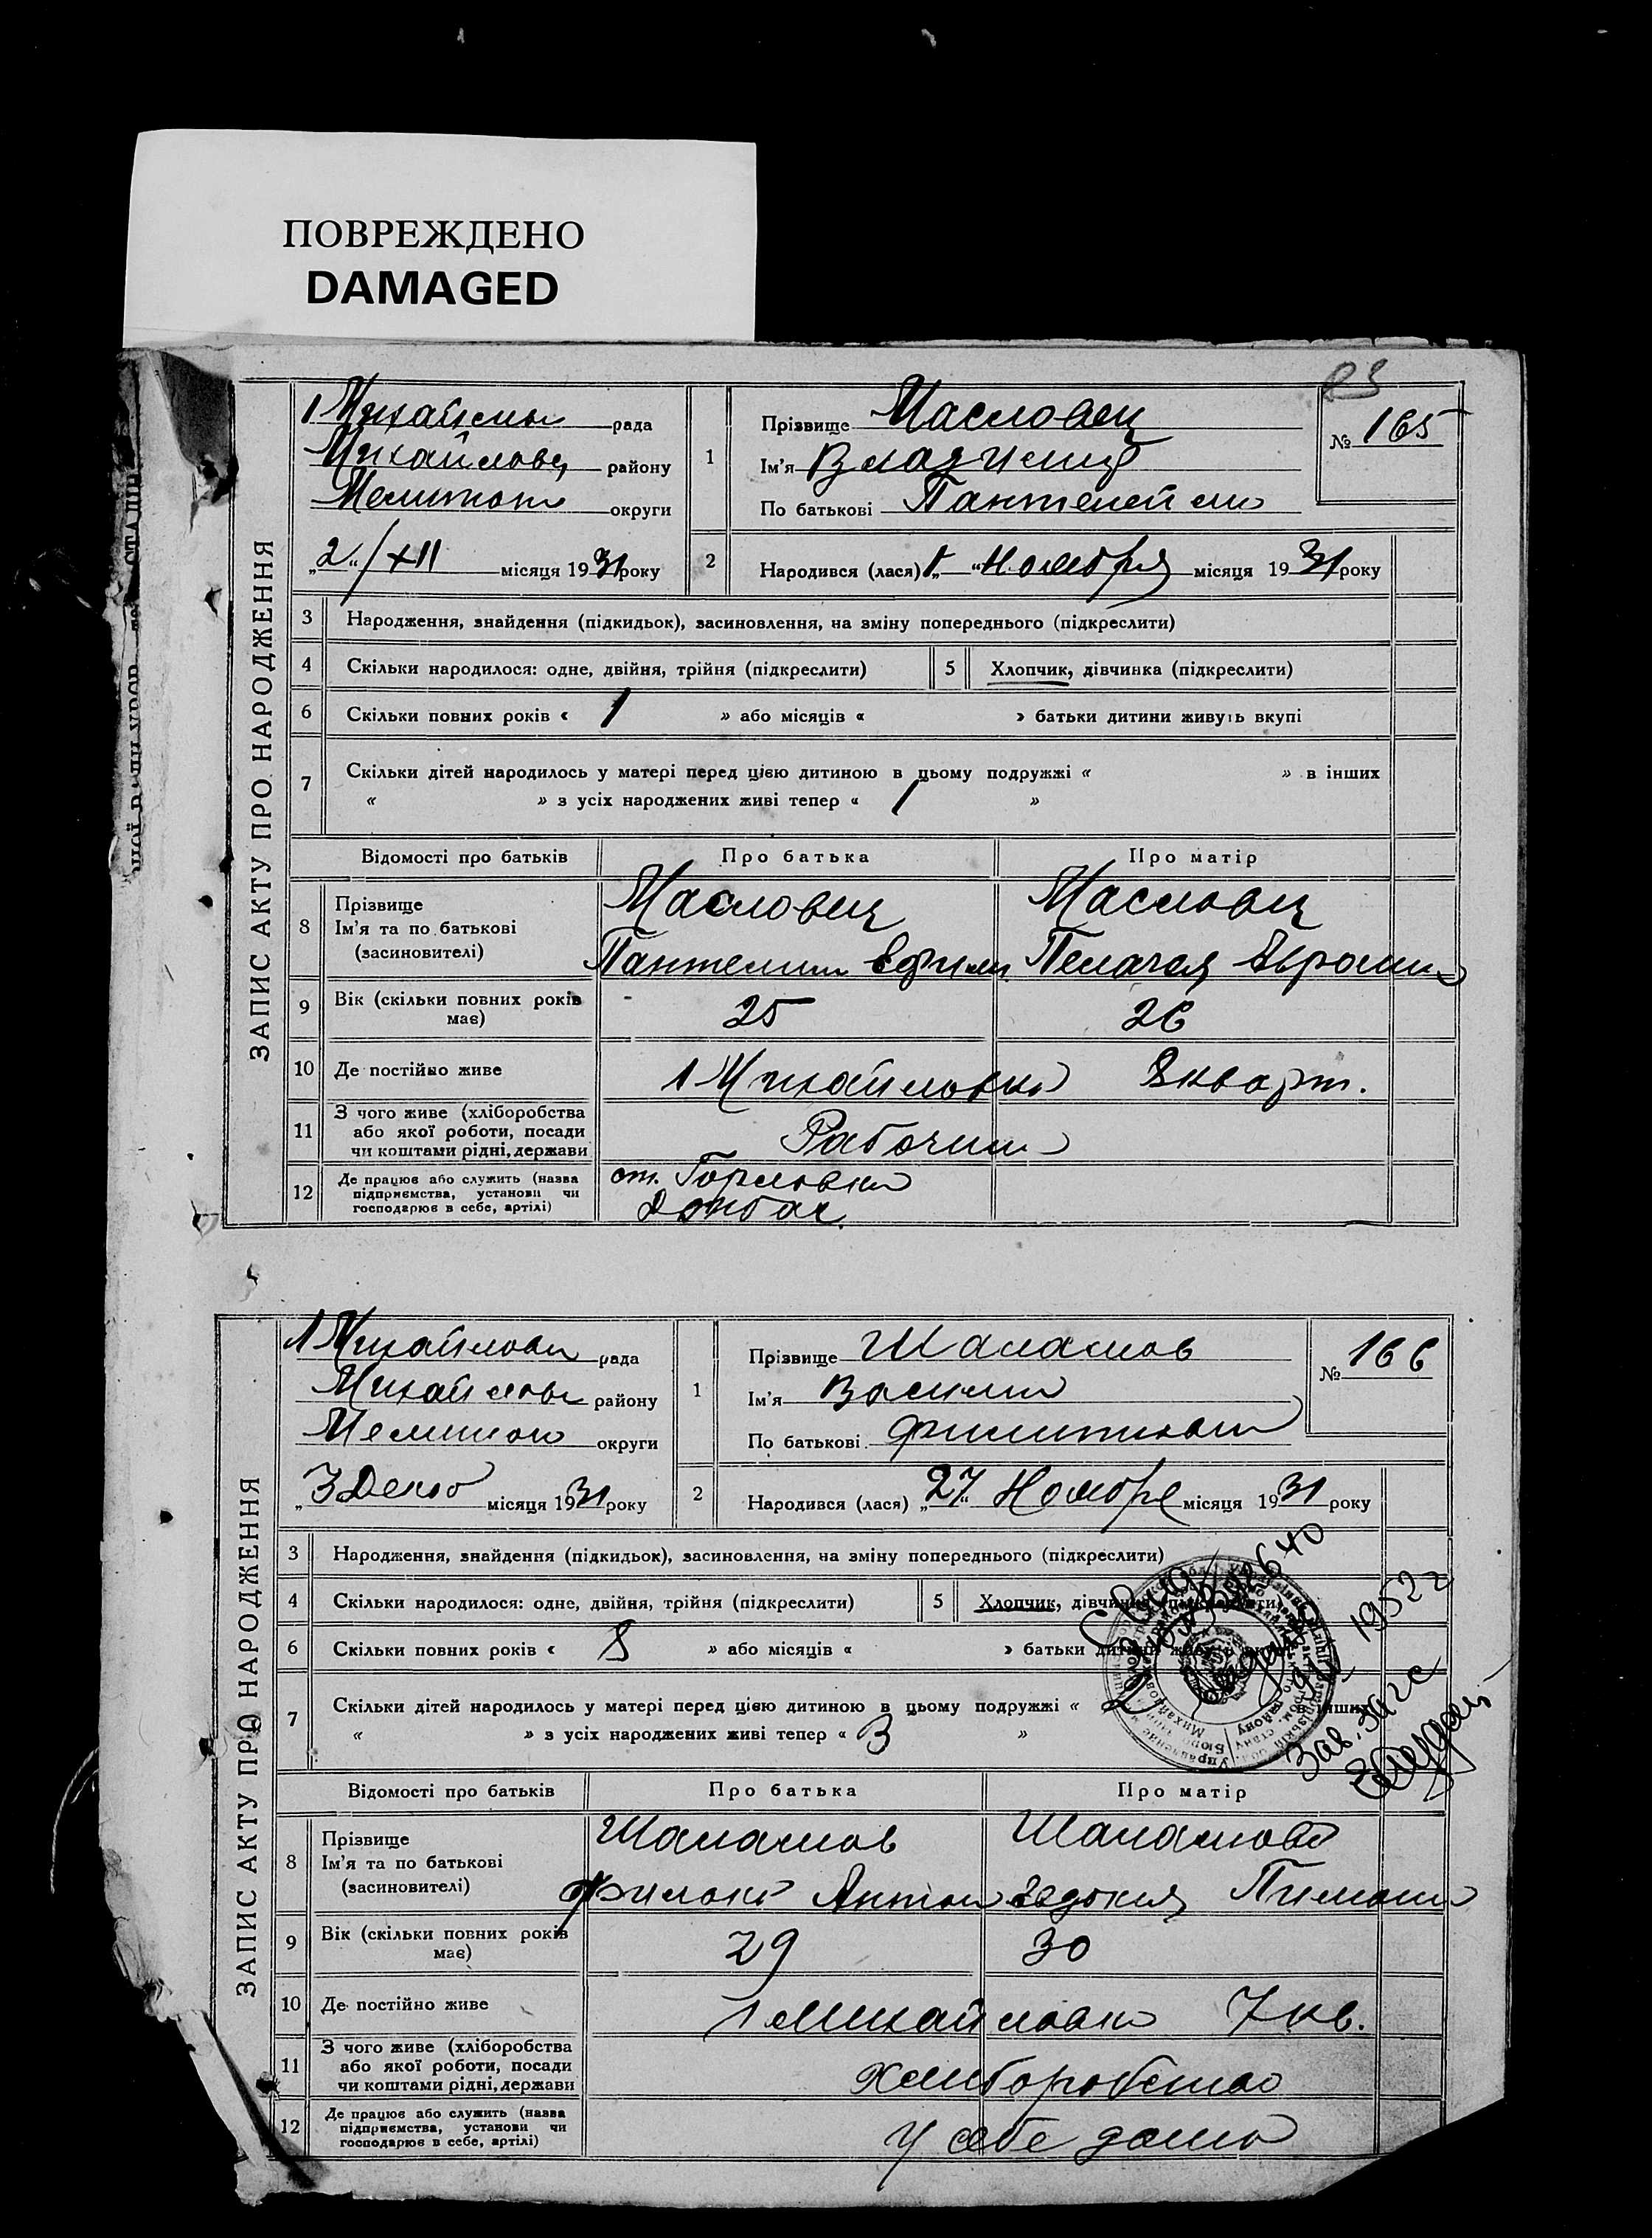 ПОВРЕЖДЕНО
DAMAGED
83
ЗАПИС АКТУ ПРО НАРОДЖЕННЯ
1 Михайловск рада
Михайловс району
Мелитоп округи
„2“/XII місяця 1931 року
1
Прізвище Масловец
Ім'я Владимир
По батькові Пантелейм
№ 165
2
Народився (лася) „1“ Ноября місяця 1931 року
3 Народження, знайдення (підкидьок), засиновлення, на зміну попереднього (підкреслити)
4 Скільки народилося: одне, двійня, трійня (підкреслити) 5 Хлопчик, дівчинка (підкреслити)
6 Скільки повних років « 1 » або місяців « » батьки дитини живуть вкупі
7 Скільки дітей народилось у матері перед цією дитиною в цьому подружжі « » в інших
« » з усіх народжених живі тепер « 1 »
Відомості про батьків Про батька Про матір
8 Прізвище
Ім'я та по батькові
(засиновителі)
Масловец Масловец
Пантелим Ефим Пелагея
9 Вік (скільки повних років має) 25 26
10 Де постійно живе 1 Михайловка 8 кварт.
11 З чого живе (хліборобства
або якої роботи, посади
чи коштами рідні, держави
Рабочий
12 Де працює або служить (назва
підприємства, установи чи
господарює в себе, артілі)
ст. Горловка
Донбас.
ЗАПИС АКТУ ПРО НАРОДЖЕННЯ
1 Михайловск рада
Михайловс району
Мелитоп округи
„3 Декаб місяця 1931 року
1
Прізвище Шаламов
Ім'я Васили
По батькові Филипович
№ 166
2
Народився (лася) „27“ Ноябре місяця 1931 року
3 Народження, знайдення (підкидьок), засиновлення, на зміну попереднього (підкреслити)
4 Скільки народилося: одне, двійня, трійня (підкреслити) 5 Хлопчик, дівчинка (підкреслити)
6 Скільки повних років « 8 » або місяців « » батьки дитини живуть вкупі
7 Скільки дітей народилось у матері перед цією дитиною в цьому подружжі « 2 » в інших
« » з усіх народжених живі тепер « 3 »
1952 г
Зав. Загс
Відомості про батьків Про батька Про матір
8 Прізвище
Ім'я та по батькові
(засиновителі)
Шаламов Шаламова
Антон Евдокия Пимони
9 Вік (скільки повних років має) 29 30
10 Де постійно живе 1 Михайловка 7 кв.
11 З чого живе (хліборобства
або якої роботи, посади
чи коштами рідні, держави
Хлиборобство
12 Де працює або служить (назва
підприємства, установи чи
господарює в себе, артілі)
У себе дома